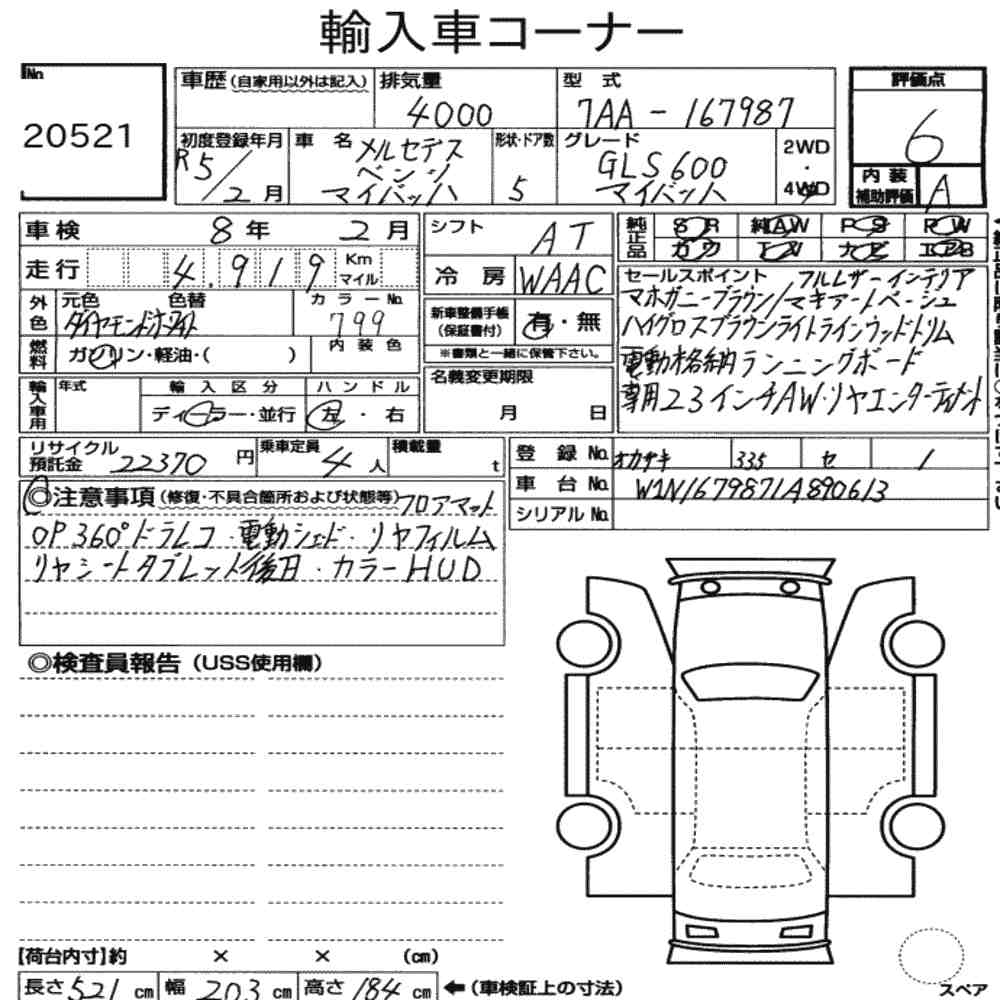 輸入車コーナー
No.
20521
車歴(自家用以外は記入)
排気量
4000
型 式
7AA-167987
評価点
6
初度登録年月
R5/2月
車 名
メルセデス
ベンツ
マイバッハ
形状・ドア数
5
グレード
GLS600
マイバッハ
2WD
・
4WD
内 装
補助評価
A
車検 8年 2月
走行 4,919 Km
マイル
シフト AT
冷 房 WAAC
純正品 SR 純AW PS PW
カワ TV ナビ エアB
外色 元色 色替
ダイヤモンドホワイト
カラーNo.
799
燃料 ガソリン・軽油・( )
内装色
新車整備手帳
(保証書付)
有・無
※書類と一緒に保管下さい。
セールスポイント フルレザーインテリア
マホガニーブラウン/マキアートベージュ
ハイグロスブラウンライトラインウッドトリム
電動格納ランニングボード
専用23インチAW・リヤエンターテイメント
輸入車用 年式
輸入区分
ディーラー・並行
ハンドル
左・右
名義変更期限
月 日
リサイクル
預託金 22370円
乗車定員
4人
積載量
t
登 録 No. オカザキ 335 セ 1
車 台 No. W1N1679871A890613
シリアル No.
◎注意事項(修復・不具合箇所および状態等)フロアマット
OP360°ドラレコ・電動シェード・リヤフィルム
リヤシートタブレット後日・カラーHUD
◎検査員報告(USS使用欄)
【荷台内寸】約 × × (cm)
長さ521cm 幅203cm 高さ184cm ←(車検証上の寸法)
スペア